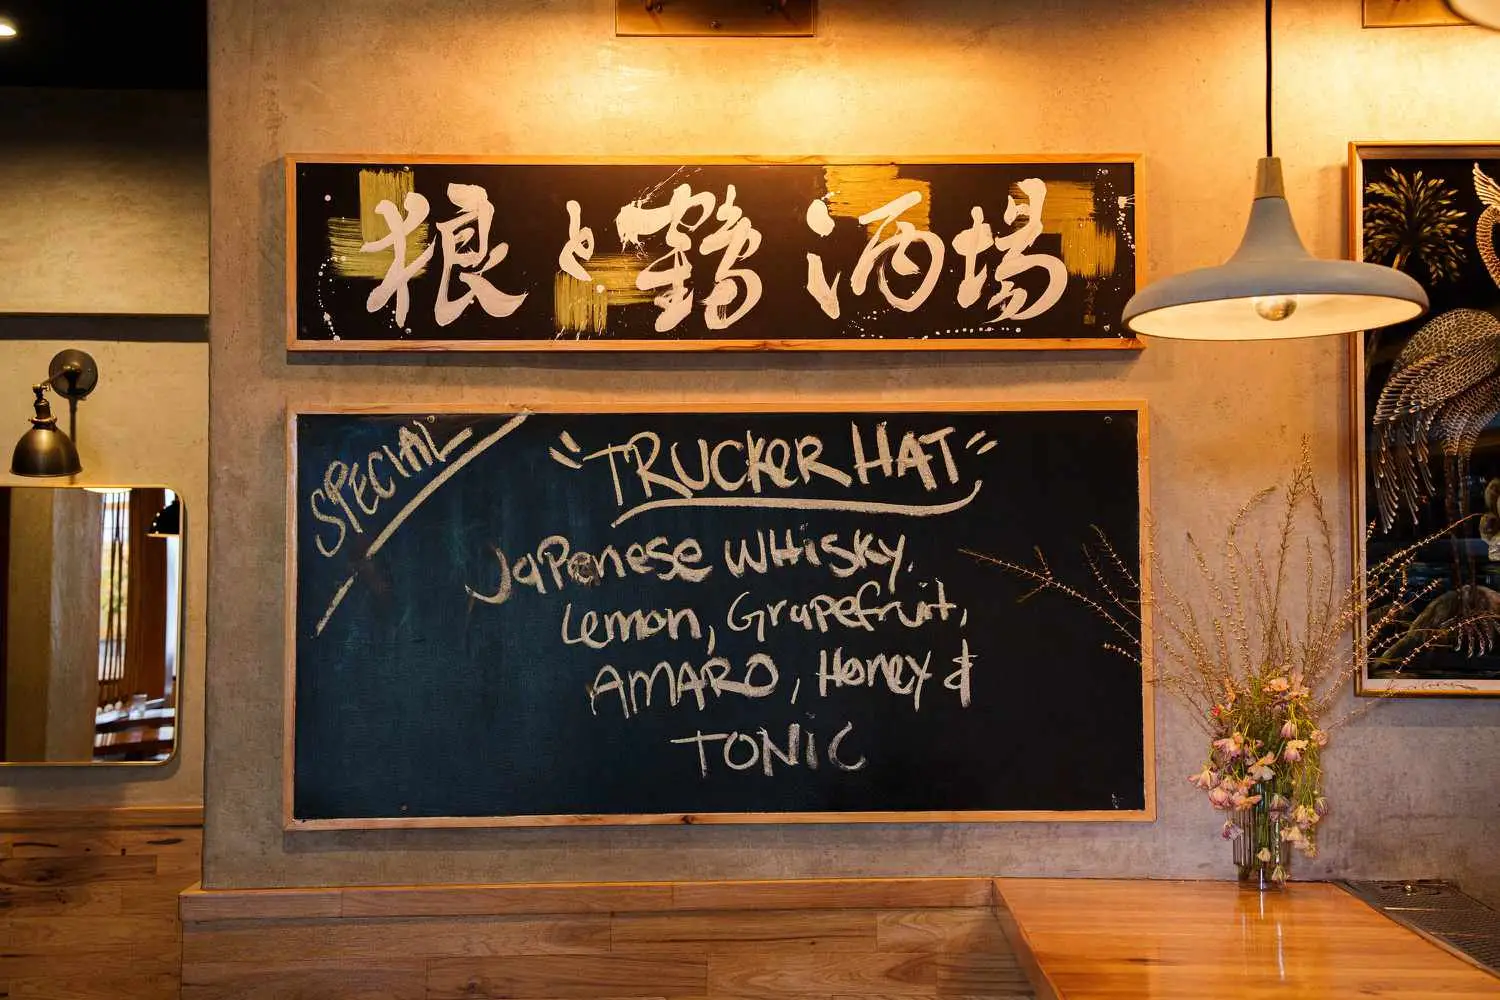 狼と鶴酒場
SPECIAL
"TRUCKER HAT"
Japenese WHisky,
Lemon, Grapefruit,
AMARO, Honey &
TONIC